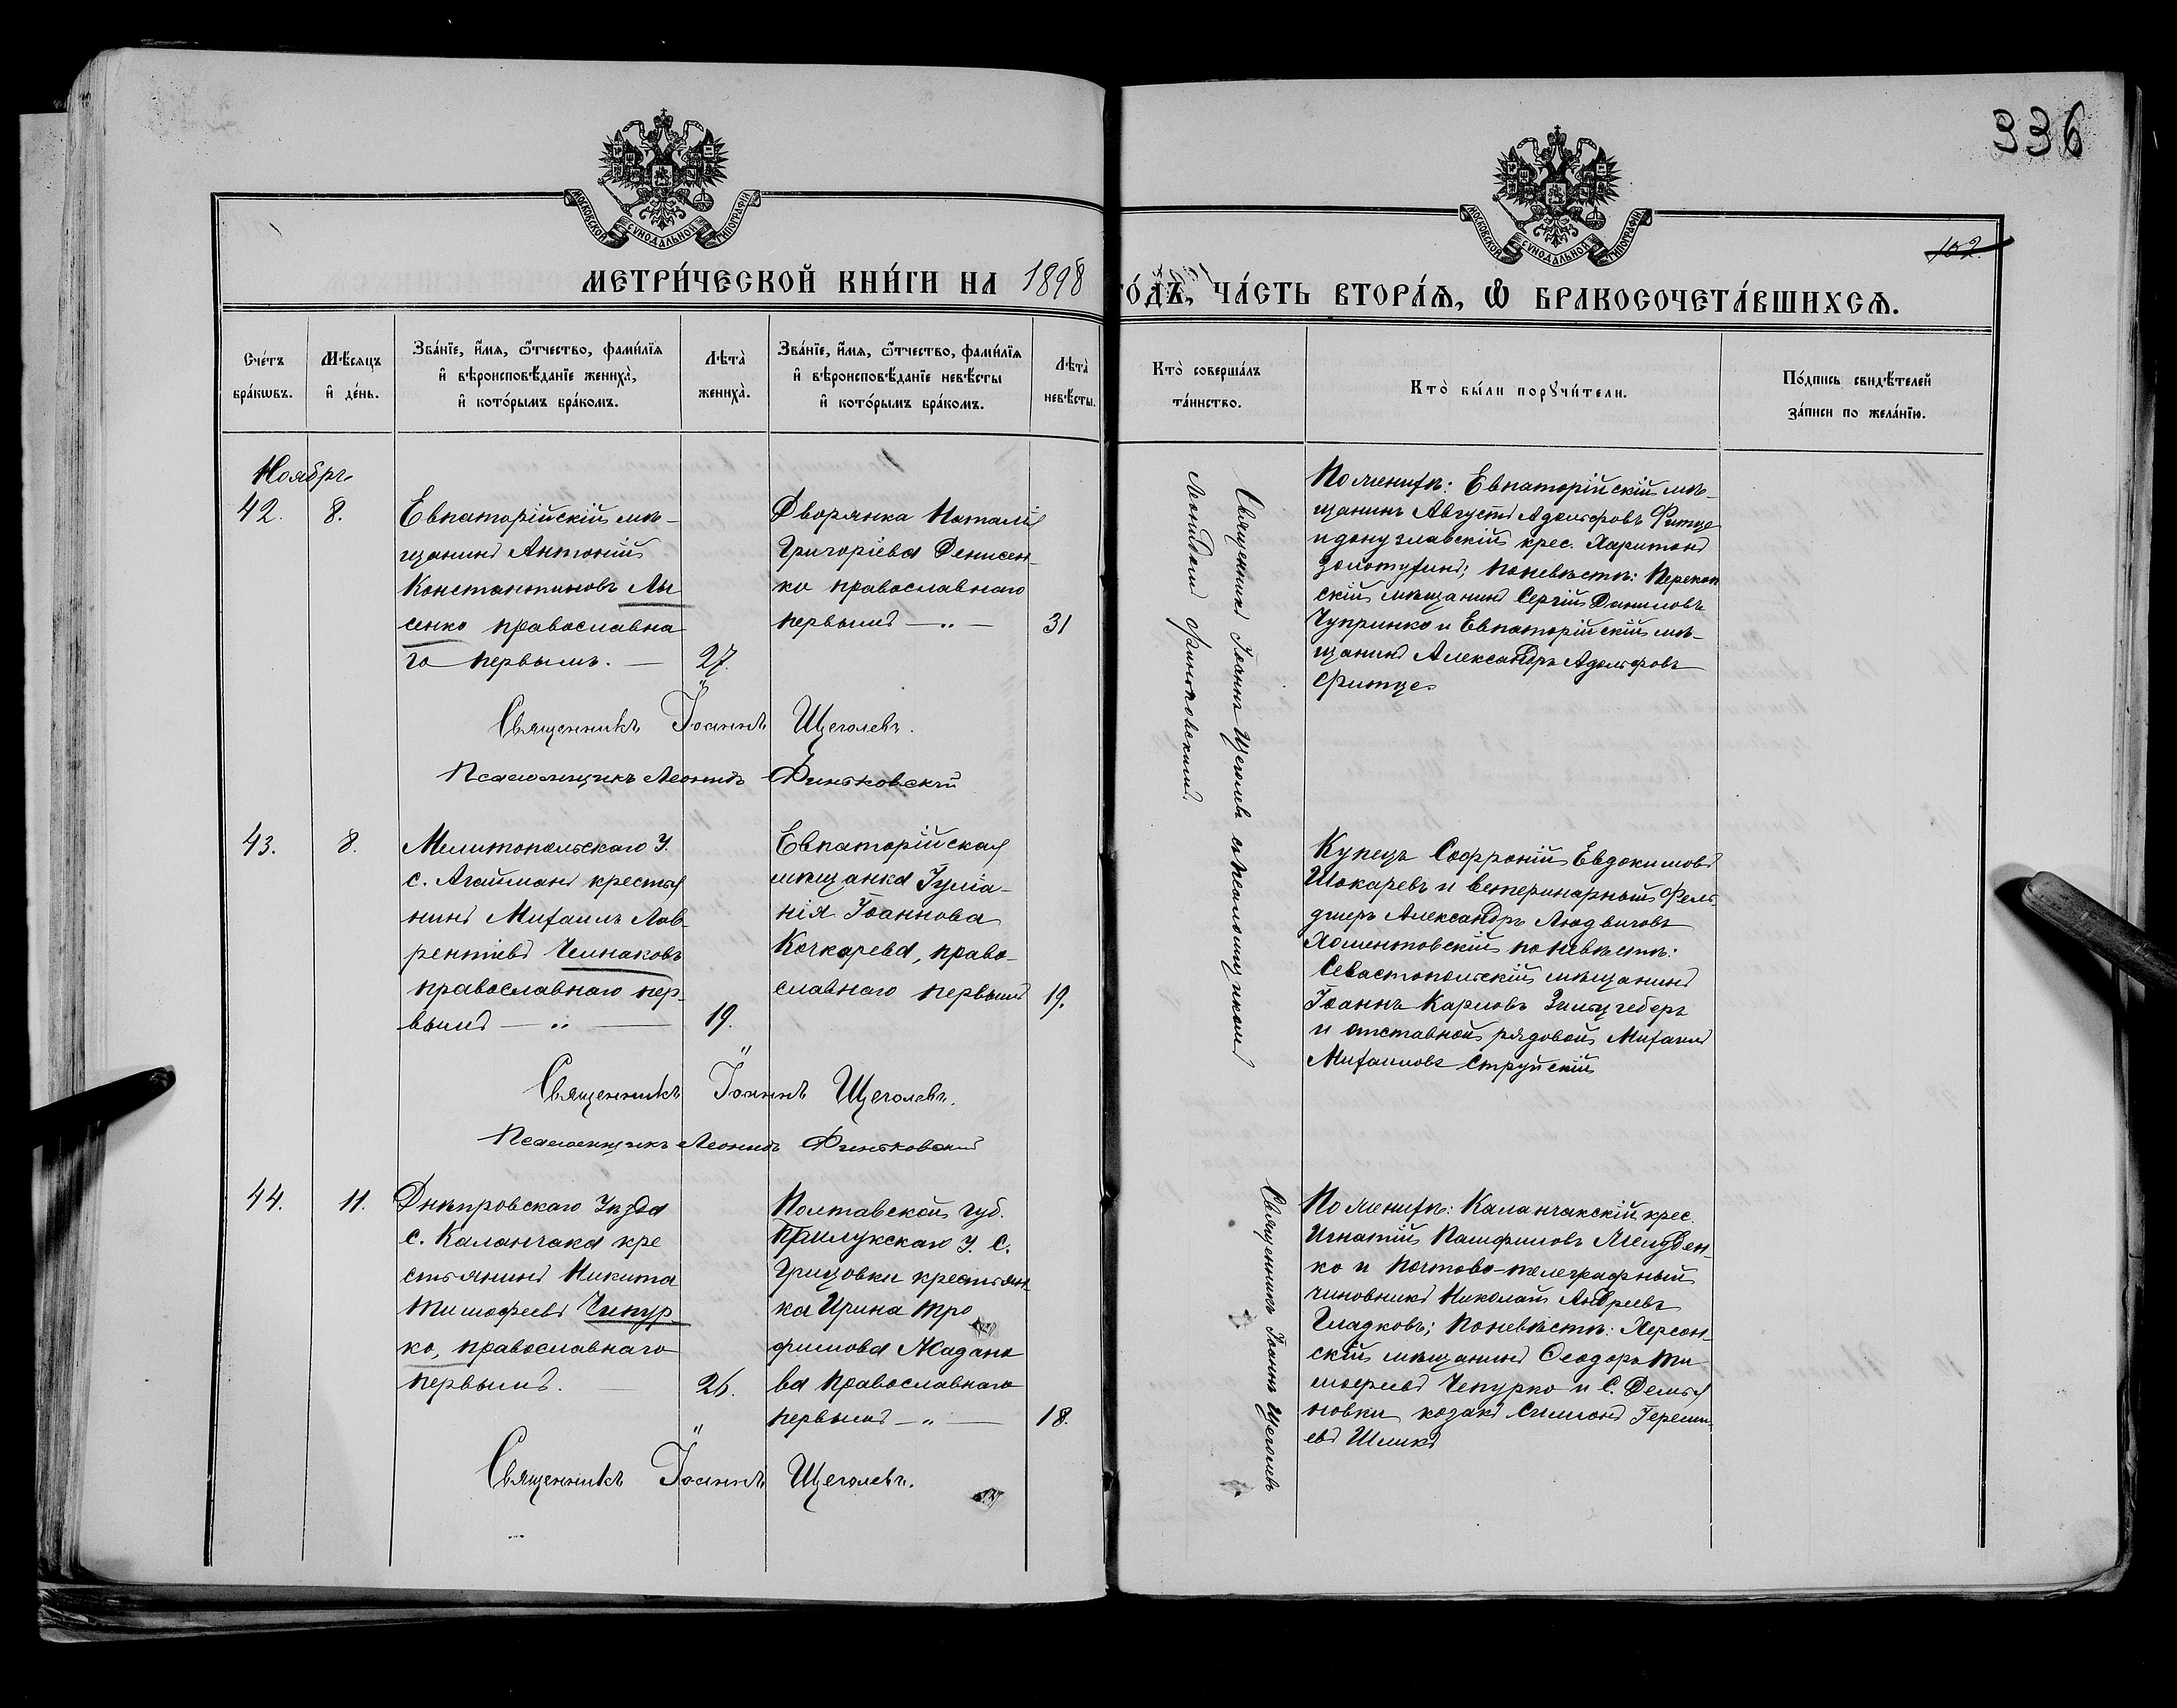 336
102.
МОСКОВСКОЙ СѴНОДАЛЬНОЙ ТИПОГРАФІИ
МОСКОВСКОЙ СѴНОДАЛЬНОЙ ТИПОГРАФІИ
МЕТРИ́ЧЕСКОЙ КНИ́ГИ НА 1898 ГО́ДЪ, ЧА́СТЬ ВТОРА́Ѧ, Ѽ БРАКОСОЧЕТА́ВШИХСѦ.
Сче́тъ
бра́кѡвъ.
Мѣ́сяцъ
и҆ де́нь.
Зва́нїе, и҆́мя, ѻ҆́тчество, фами́лїя
и҆ вѣроисповѣ́данїе жениха̀,
и҆ кото́рымъ бра́комъ.
Лѣта̀
жениха̀.
Зва́нїе, и҆́мя, ѻ҆́тчество, фами́лїя
и҆ вѣроисповѣ́данїе невѣ́сты
и҆ кото́рымъ бра́комъ.
Лѣта̀
невѣ́сты.
Кто̀ соверша́лъ
та́инство.
Кто̀ бы́ли порꙋчи́тели.
По́дпись свидѣ́телей
за́писи по жела́нїю.
Ноябрь
42.
8.
Евпаторійскій мѣ-
щанинъ Антоній
Константиновъ Лы
сенко православна
го первымъ. —
27.
Дворянка Наталія
Григоріева Денисен-
ко православнаго
первымъ — „ —
31
Священникъ Іоаннъ Щеголевъ съ псаломщикомъ
Леонидомъ Финьковскимъ.
По женихѣ: Евпаторійскій мѣ-
щанинъ Августъ Адольфовъ Фитце
и донузлавскій крес. Харитонъ
Золотухинъ; по невѣстѣ: Перекоп
скій мѣщанинъ Сергій Даниловъ
Чупринко и Евпаторійскій мѣ-
щанинъ Александръ Адольфовъ
Фитце
Священникъ Іоаннъ Щеголевъ.
Псаломщикъ Леонидъ Финьковскій
43.
8.
Мелитопольскаго У.
с. Агайманъ крестья
нинъ Михаилъ Лав-
рентіевъ Чемнаковъ
православнаго пер-
вымъ — „ —
19.
Евпаторійская
мѣщанка Іуліа-
нія Іоаннова
Кочкарева, право-
славнаго первымъ
19.
Купецъ Софроній Евдокимовъ
Шокаревъ и ветеринарный Фель-
дшеръ Александръ Людвиговъ
Хоментовскій по невѣстѣ:
Севастопольскій мѣщанинъ
Іоаннъ Карловъ Зильчеберъ
и отставной рядовой Михаилъ
Михаиловъ Струйскій
Священникъ Іоаннъ Щеголевъ.
Псаломщикъ Леонидъ Финьковскій
44.
11.
Днѣпровскаго Уѣзда
с. Каланчака кре
стьянинъ Никита
Тимофеевъ Чепур
ко, православнаго
первымъ. —
26.
Полтавской губ.
Прилукскаго У. С.
Грицовки крестьян-
ка Ирина Тро
фимова Жадано
ва православнаго
первымъ — „ —
18.
Священникъ Іоаннъ Щеголевъ
По женихѣ: Каланчакскій крес.
Игнатій Памфиловъ
ко и почтово-телеграфный
чиновникъ Николай Андреевъ
Гладковъ; по невѣстѣ: Херсон-
скій мѣщанинъ Ѳеодоръ Ти
мофеевъ Чепурко и С. Демья
новки козакъ Симеонъ
евъ Шлыкъ
Священникъ Іоаннъ Щеголевъ.